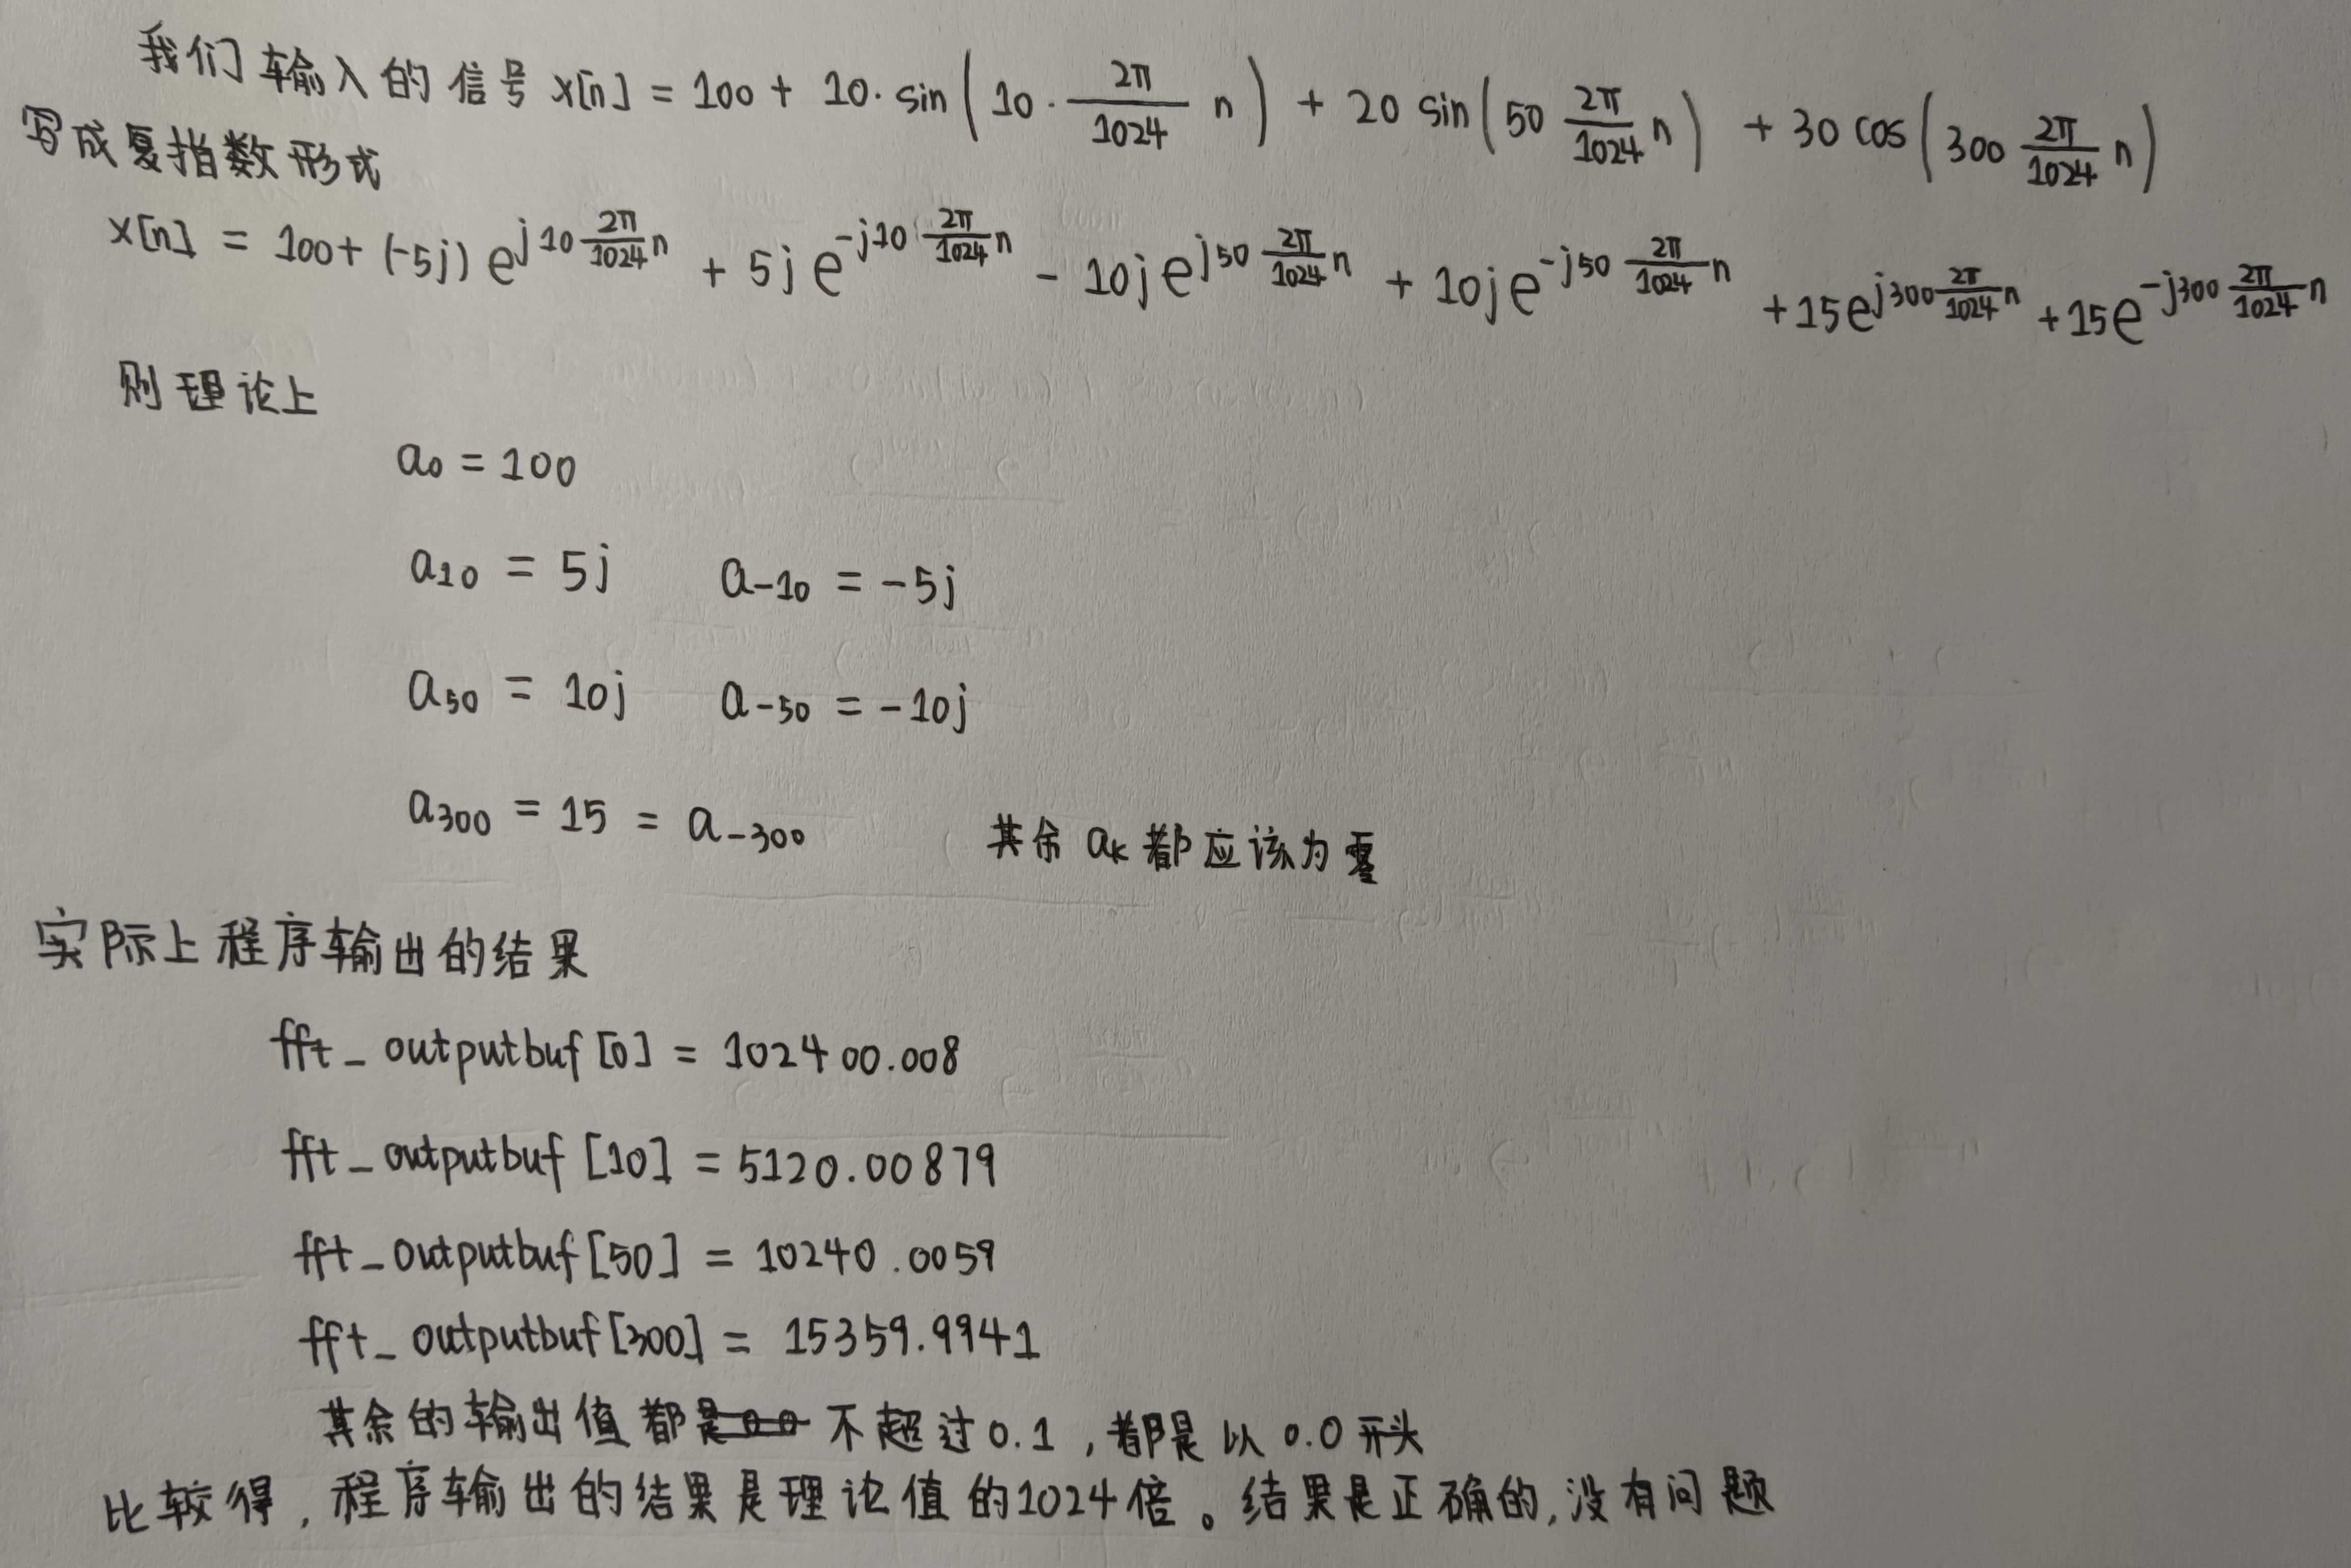 我们输入的信号 x[n] = 100 + 10·sin(10·2π/1024 n) + 20 sin(50 2π/1024 n) + 30 cos(300 2π/1024 n)
写成复指数形式
x[n] = 100 + (-5j) e^{j10 2π/1024 n} + 5j e^{-j10 2π/1024 n} - 10j e^{j50 2π/1024 n} + 10j e^{-j50 2π/1024 n} + 15e^{j300 2π/1024 n} + 15e^{-j300 2π/1024 n}
则理论上
a₀ = 100
a₁₀ = 5j a₋₁₀ = -5j
a₅₀ = 10j a₋₅₀ = -10j
a₃₀₀ = 15 = a₋₃₀₀ 其余 aₖ 都应该为零
实际上程序输出的结果
fft_outputbuf[0] = 102400.008
fft_outputbuf[10] = 5120.00879
fft_outputbuf[50] = 10240.0059
fft_outputbuf[300] = 15359.9941
其余的输出值都不超过0.1,都是以0.0开头
比较得,程序输出的结果是理论值的1024倍。结果是正确的,没有问题